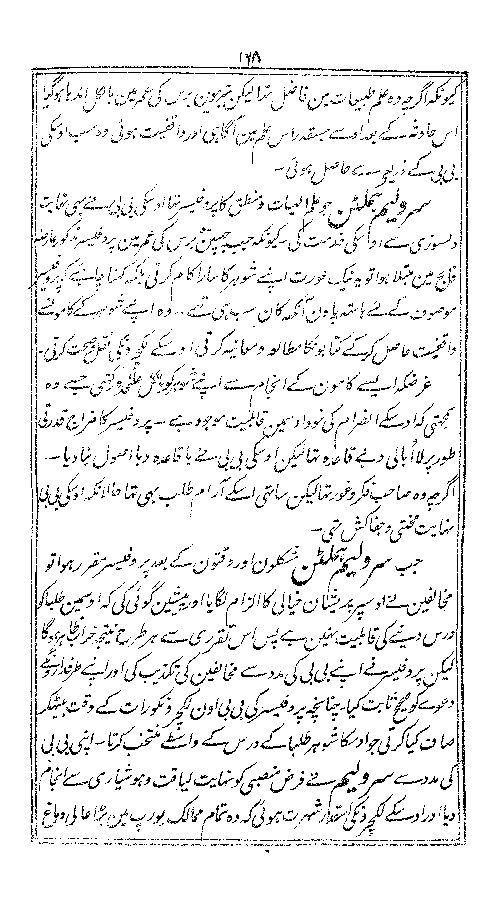 ۱۶۸
کیونکہ اگرچہ وہ علم طبیعات مین فاضل تھا لیکن تیرہوین برس کی عمر مین بالکل اندھا ہوگیا
اس حادثہ کے بعد اوسے جسقدر اس علم مین آگاہی اور واقفیت ہوئی وہ سب اوسکی
بی بی کے ذریعہ سے حاصل ہوئی۔
سر ولیم ہملٹن جو علم الٰہیات و منطق کا پروفیسر تھا اوسکی بی بی نے بھی نہایت
دلسوزی سے اوسکی خدمت کی۔ کیونکہ جب چھپن برس کی عمر مین پروفیسر مذکور عارضہ
فالج مین مبتلا ہوا تو یہ نیک عورت اپنے شوہر کا سارا کام کرتی بلکہ کہنا چاہئے کہ پروفیسر
موصوف کے لئے ہاتھ پاون آنکھ کان سب یہی تھے۔ وہ اپنے شوہر کے کام سے
واقفیت حاصل کرنیکے کتابونکا مطالعہ و معائنہ کرتی اوسکے لکچرونکی نقل و صحت کرتی۔
غرضکہ ایسے کامون کے انجام سے اپنے شوہر کو بالکل علٰحدہ رکھتی جسے وہ
سمجھتی کہ اوسکے انصرام کی خود اوسمین قابلیت موجود ہے۔ پروفیسر کا مزاج قدرتی
طور پر لاأبالی و بے قاعدہ تھا لیکن اوسکی بی بی نے باقاعدہ و بااصول بنا دیا۔
اگرچہ وہ صاحب فکر و غور تھا لیکن ساتھ ہی اسکے آرام طلب بھی تھا حالانکہ اوسکی بی بی
نہایت محنتی و جفاکش تھی۔
جب سر ولیم ہملٹن مشکلون اور دقتون کے بعد پروفیسر مقرر ہوا تو
مخالفین نے اوسپر پریشان خیالی کا الزام لگایا اور پیشین گوئی کی کہ اوسمین طلبا کو
درس دینے کی قابلیت نہین ہے پس اس تقرری سے ہر طرح نتیجہ خراب ظاہر ہوگا
لیکن پروفیسر نے اپنے بی بی کی مدد سے مخالفین کی تکذیب کی اور اپنے طرفدارونکے
دعوے کو صحیح ثابت کیا۔ چنانچہ پروفیسر کی بی بی اون لکچرونکو رات کے وقت بیٹھکر
صاف کیا کرتی جو اوسکا شوہر طلبا کے درس کے واسطے منتخب کرتا۔ اپنی بی بی
کی مدد سے سر ولیم نے فرض منصبی کو نہایت لیاقت و ہوشیاری سے انجام
دیا اور اوسکے لکچرونکی اسقدر شہرت ہوئی کہ وہ تمام ممالک یورپ مین بڑا عالی دماغ